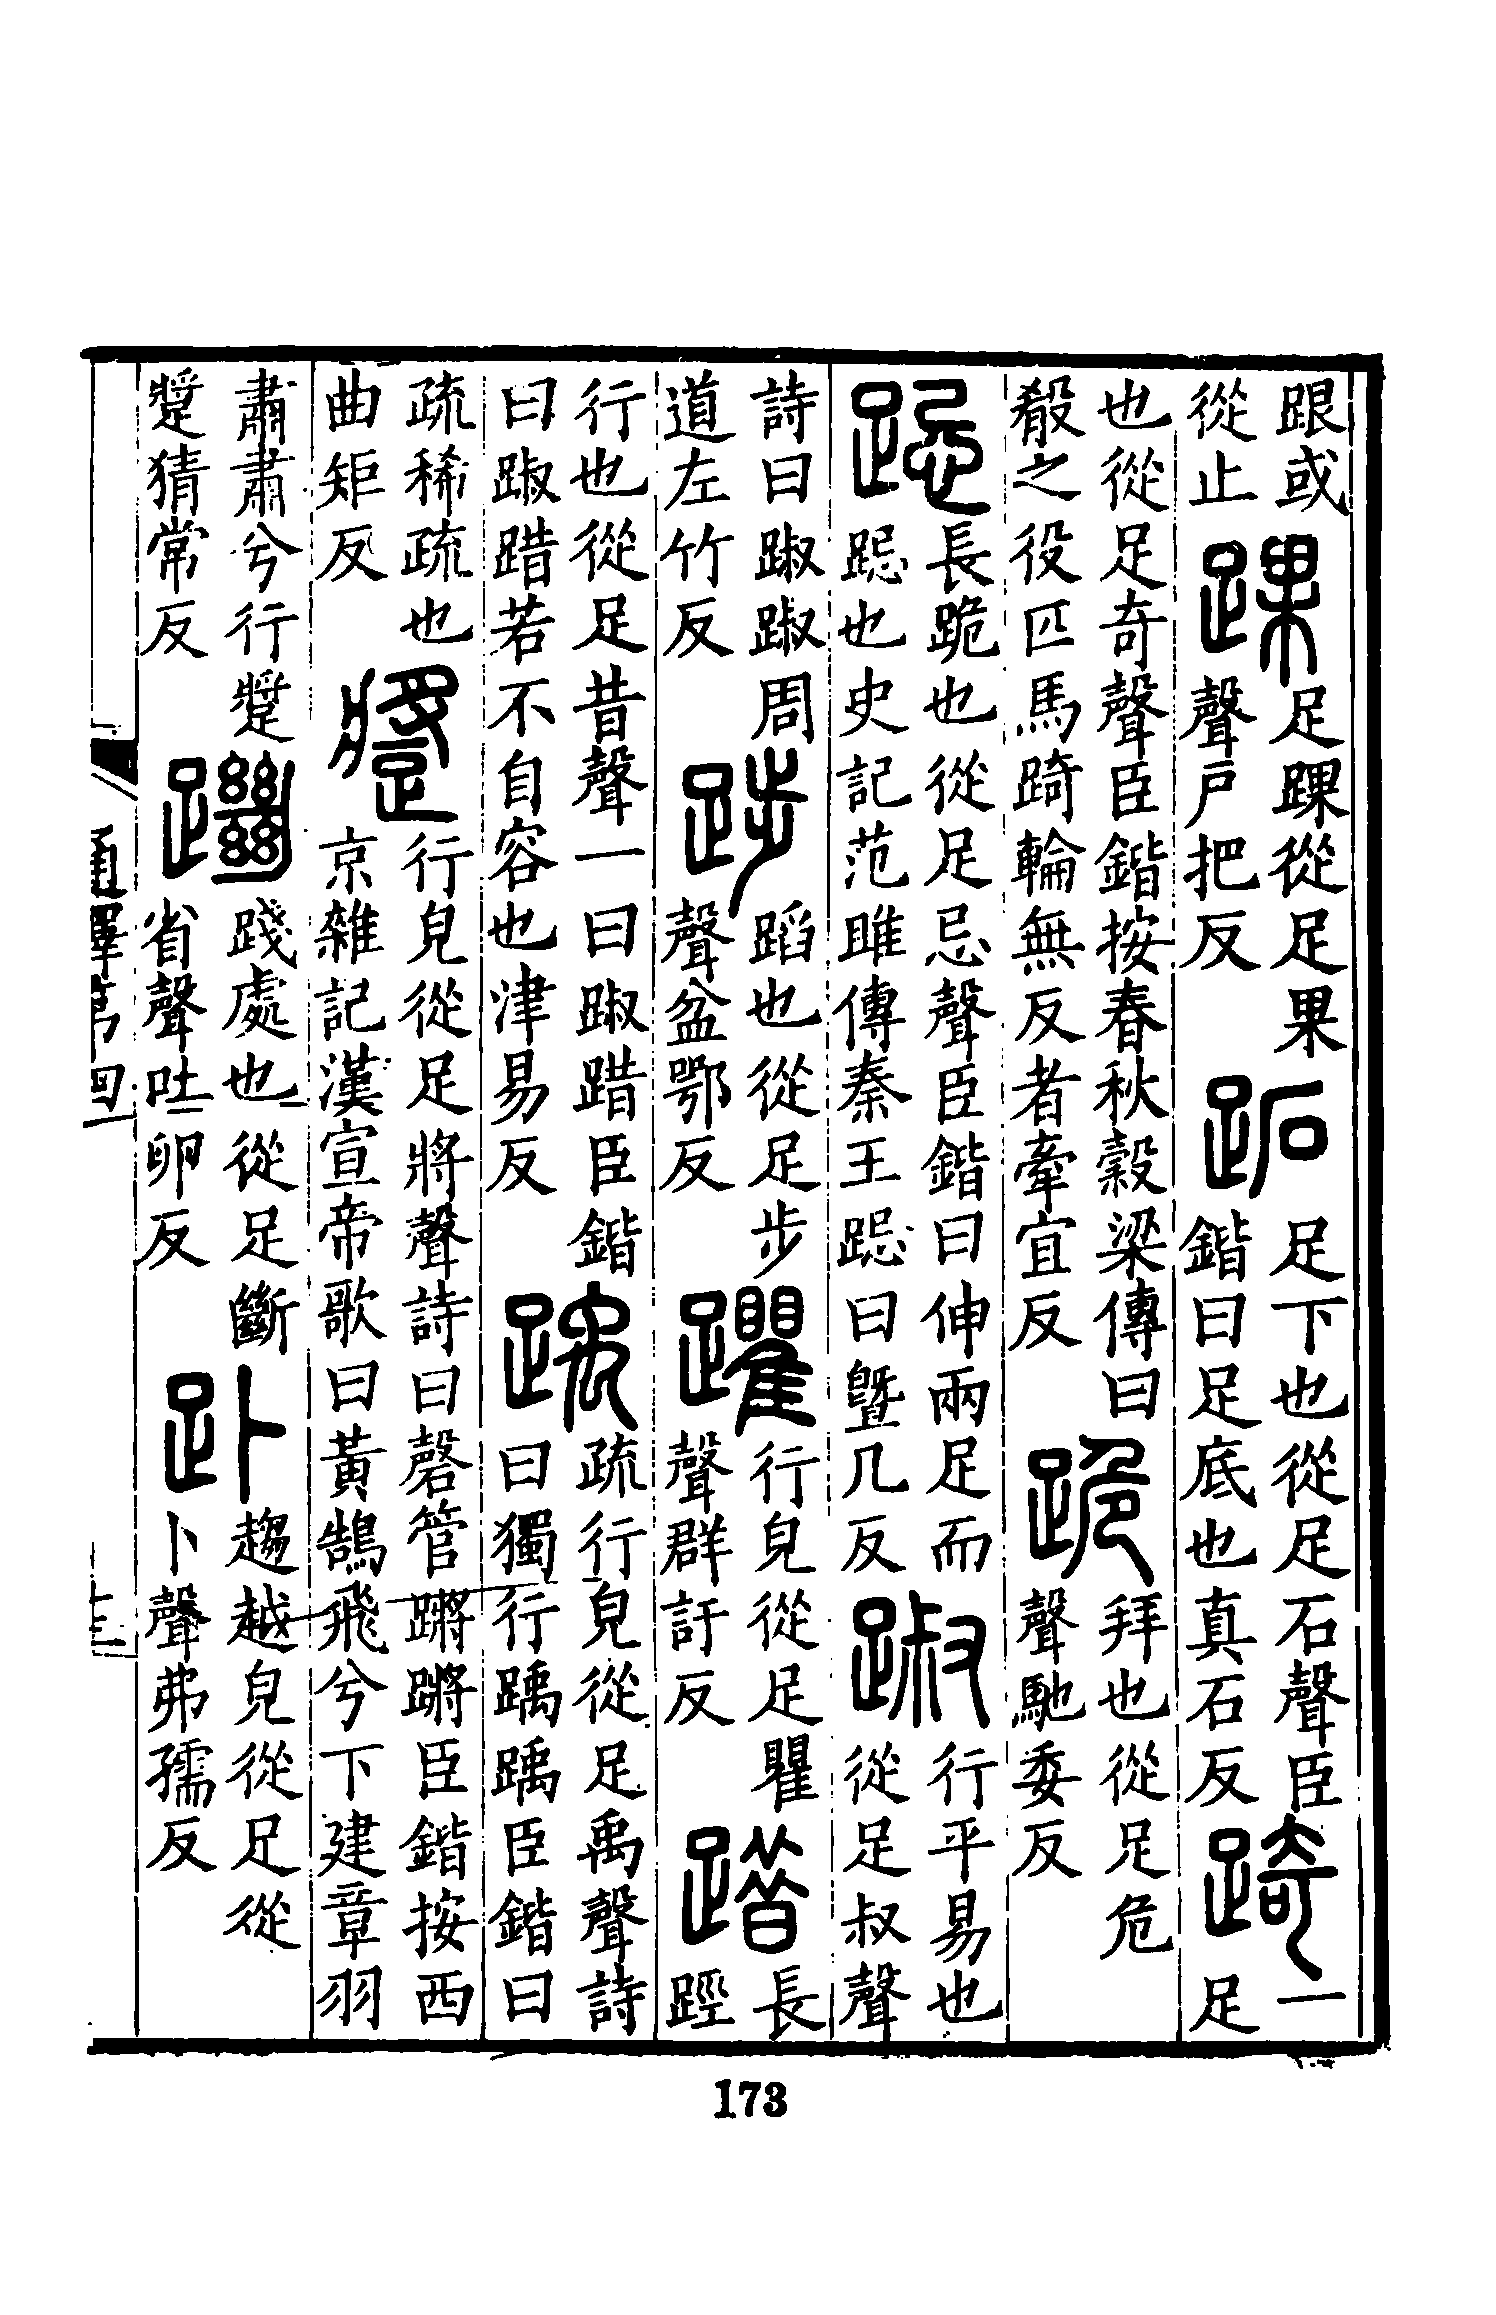 跟或從止 踝足踝從足果聲戶把反 跖足下也從足石聲臣鍇曰足底也真石反 踦一足
也從足奇聲臣鍇按春秋穀梁傳曰殽之役匹馬踦輪無反者牽宜反 跪拜也從足危聲馳委反
跽長跪也從足忌聲臣鍇曰伸兩足而跽也史記范雎傳秦王跽曰曁几反 踧行平易也從足叔聲
詩曰踧踧周道左竹反 踄蹈也從足步聲盆鄂反 躣行皃從足瞿聲群訏反 踖長踁
行也從足昔聲一曰踧踖臣鍇曰踧踖若不自容也津易反 踽疏行皃從足禹聲詩曰獨行踽踽臣鍇曰
疏稀疏也曲矩反 蹡行皃從足將聲詩曰磬管蹡蹡臣鍇按西京雜記漢宣帝歌曰黃鵠飛兮下建章羽
肅肅兮行蹡蹡猜常反 躖踐處也從足斷省聲吐卵反 䟔趨越皃從足卜聲弗孺反
通釋第四
173